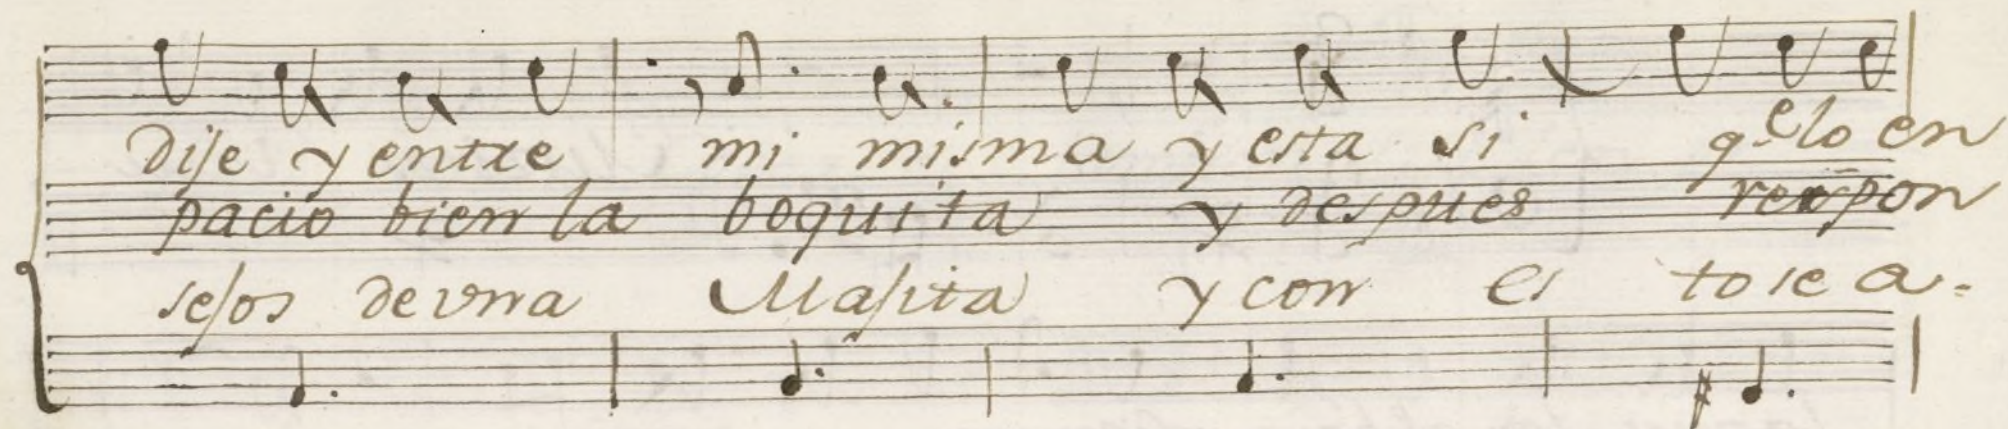 dije y entre mi misma y esta si q.e lo en
pacio bien la boquita y despues respon
sesos de vna Masita y con es to se a-